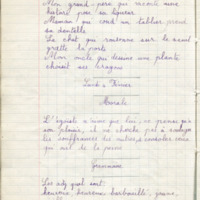 Mon grand-père qui raconte une
histoire pose sa
Maman qui coud un tablier prend
sa dentelle
Le chat qui ronronne sur le seuil
gratte la porte
Mon oncle qui dessine une plante
choisit ses crayons
Lundi 2 Février
Morale
L'égoïste n'aime que lui, ne pense qu'à
son plaisir, il ne cherche pas à soulager
les souffrances des autres,
qui ait de la peine
Grammaire
Les adj. qual. sont :
jaune,